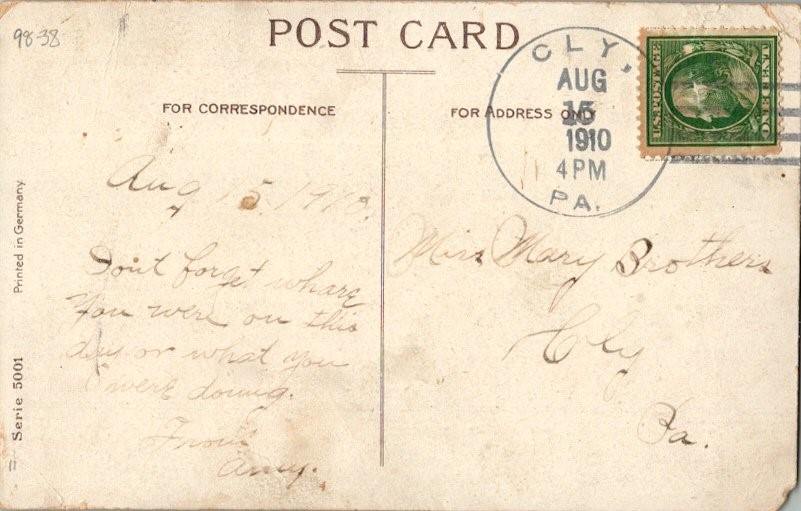 98-38
POST CARD
FOR CORRESPONDENCE
FOR ADDRESS ONLY
CLY,
AUG
15
1910
4 PM
PA.
U.S. POSTAGE
ONE CENT
Printed in Germany
Serie 5001
11
Aug 15, 1910.
Don't forget whare
you were on this
day or what you
were doing.
From
Amy.
Miss Mary Brothers
Cly
Pa.